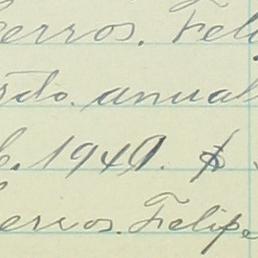 erros. Feli
rdo. anual
b. 1949. $
erros. Felipe